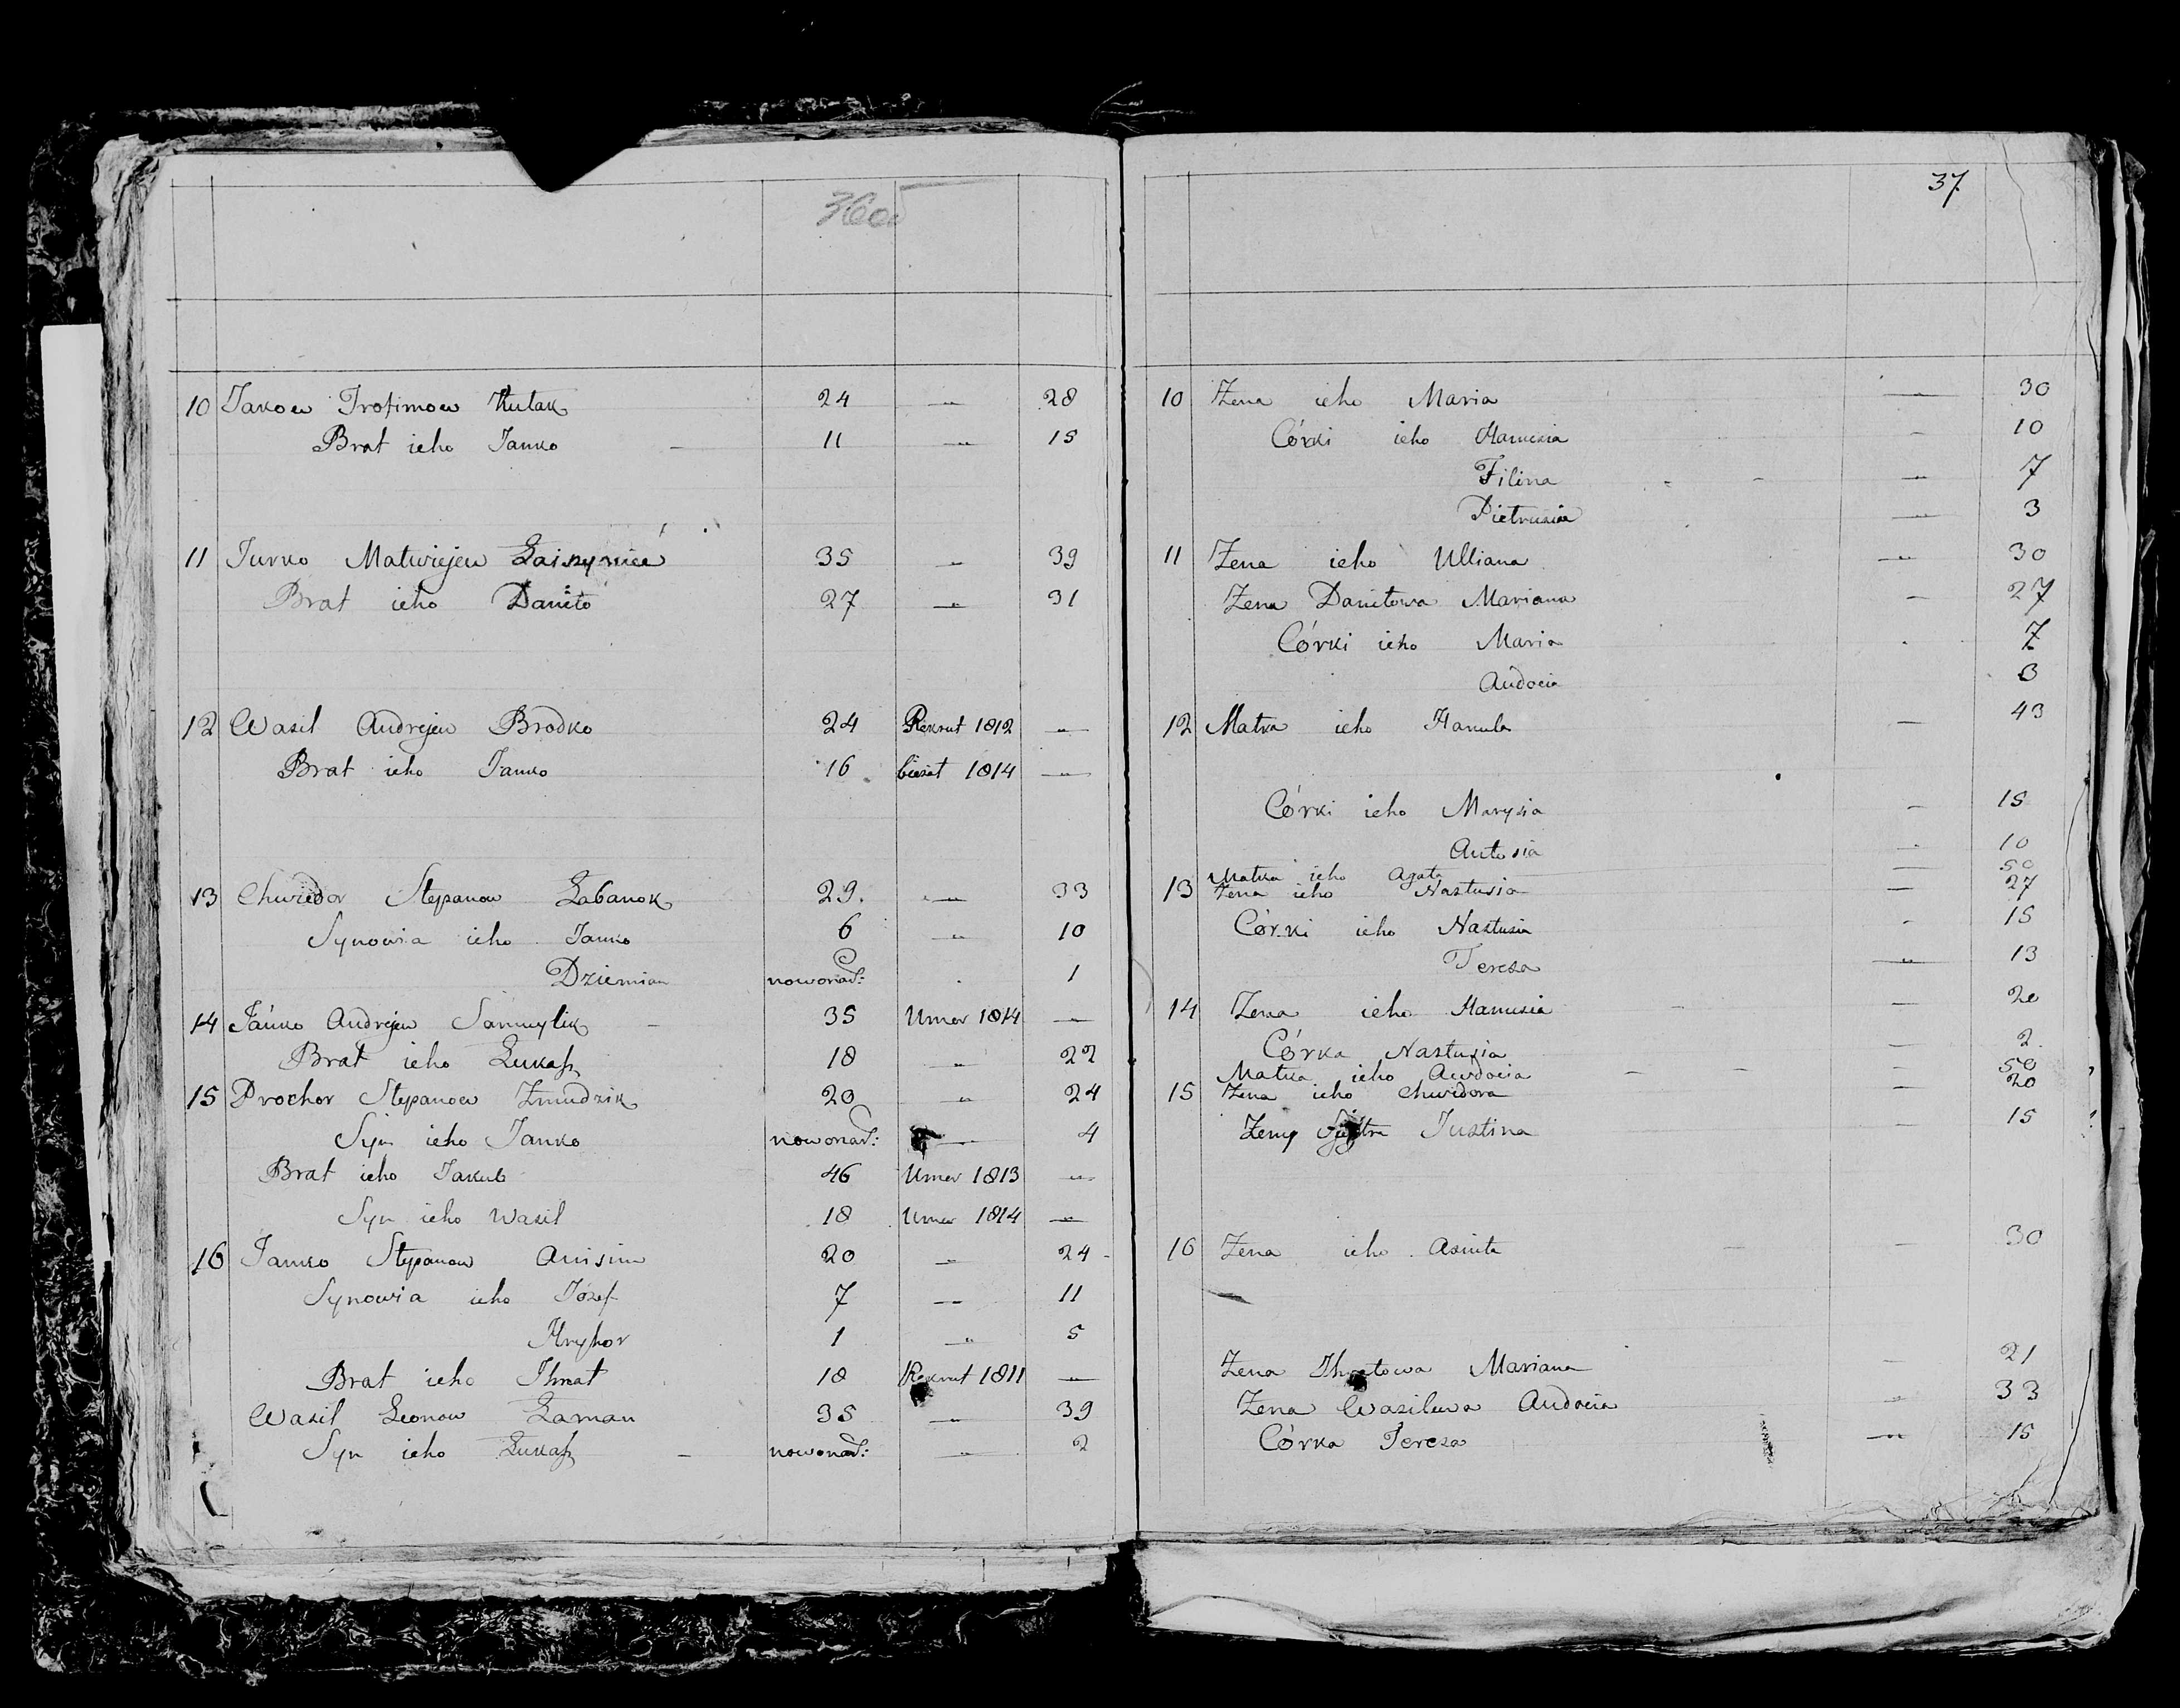 37
10 Jakow Trofimow Kulak 24 — 28
Brat ieho Janko — 11 — 15
11 Jurko Matwiejew 35 — 39
Brat ieho Daniło 27 — 31
12 Wasil Andrejew Brodko 24 Rekrut 1812 —
Brat ieho Janko 16 bieżał 1814 —
13 Chwiedor Stepanow Łabanok 29. — 33
Synowia ieho Janko 6 — 10
Dziemian noworod: 1
14 Janko Andrejew Samuylik — 35 Umer 1814 —
Brat ieho Łukasz 18 — 22
15 Prochor Stepanow Żmudzik 20 — 24
Syn ieho Janko noworod: — 4
Brat ieho Jakub 46 Umer 1813 —
Syn ieho Wasil 18 Umer 1814 —
16 Janko Stepanow Anisim 20 — 24
Synowia ieho Józef 7 — 11
Hryhor 1 — 5
Brat ieho Ihnat 18 Rekrut 1811 —
Wasil Leonow Łaman 35 — 39
Syn ieho Łukasz — noworod: — 2
10 Żena ieho Maria — 30
Córki ieho Hanusia — 10
Filina — 7
Pietrusia — 3
11 Żena ieho Ulliana — 30
Żena Daniłowa Mariana — 27
Córki ieho Maria 7
Audocia 3
12 Matka ieho Hanula — 43
Córki ieho Marysia — 15
Antosia — 10
Matka ieho Agata — 50
13 Żena ieho Nastusia — 27
Córki ieho Nastusia — 15
Teresa — 13
14 Żena ieho Hanusia — 20
Córka Nastusia — 2
Matka ieho Audocia — 50
15 Żena ieho Chwidora — 20
Żeny Justina — 15
16 Żena ieho — 30
Żena Ihnatowa Mariana — 21
Żena Wasilewa Audocia — 33
Córka Teresa — 15